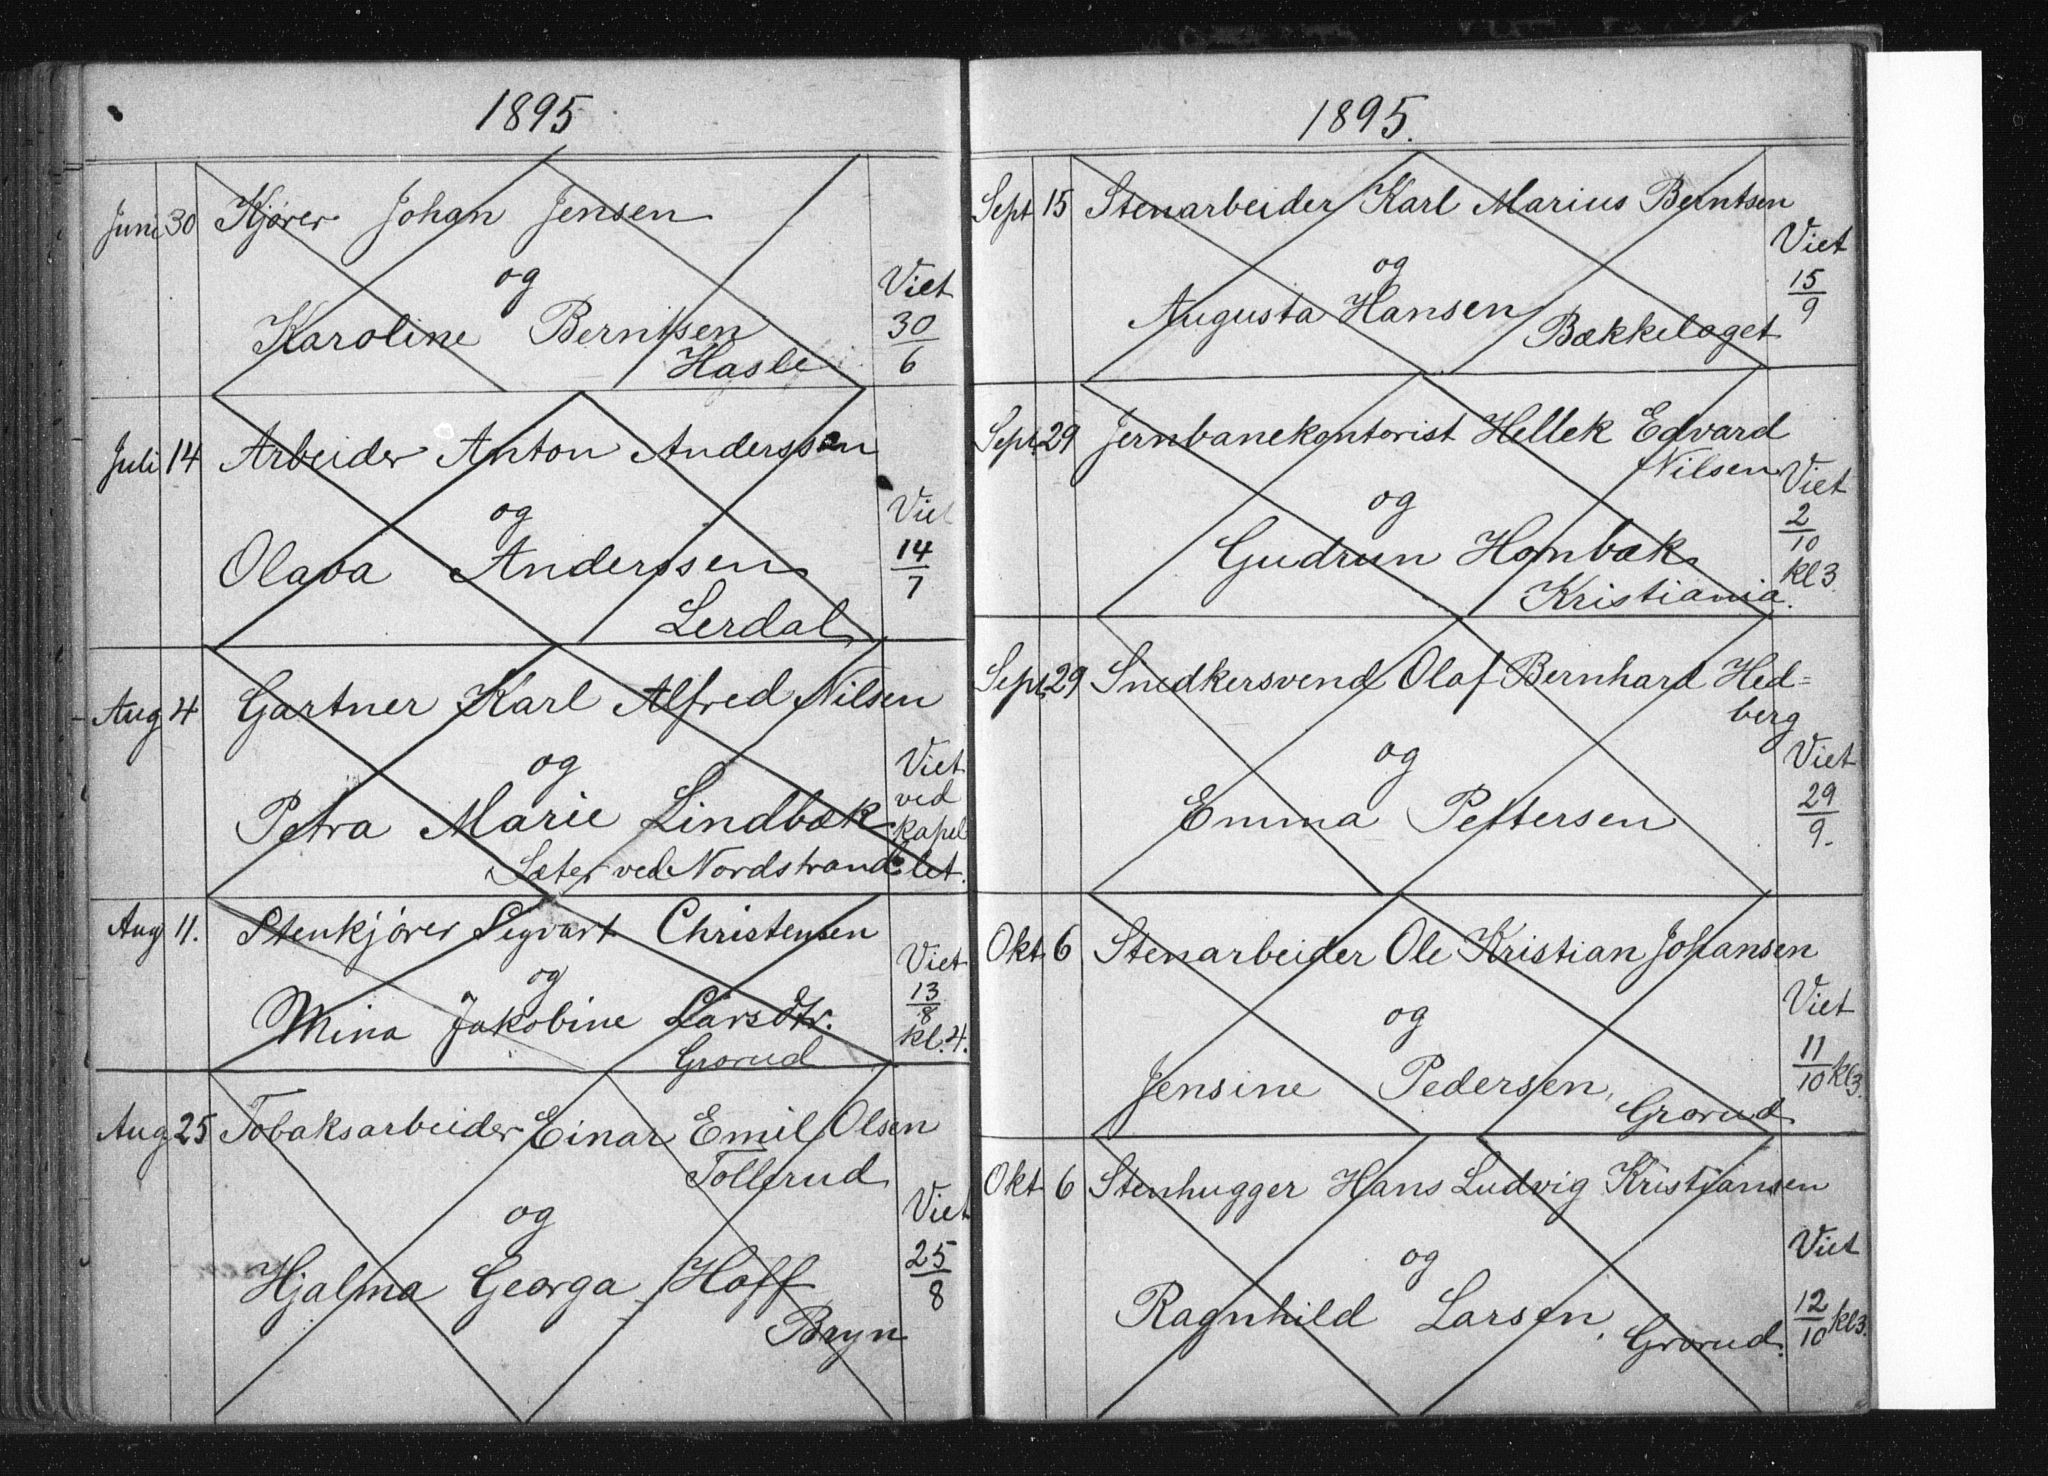 1895
Juni 30 Kjører Johan Jensen
og
Viet
Karoline Berntsen
30/6
Hasle
Juli 14 Arbeider Anton Anderssen
Viet
og
Olava Anderssen
14/7
Lerdal
Aug 4 Gartner Karl Alfred Nilsen
og
Viet
Petra Marie Lindbæk
ved
kapel
Sæter ved Nordstrand
let.
Aug 11. Stenkjører Sigvart Christensen
og
Viet
Mina Jakobine Larsdtr.
13/8
kl. 4.
Grorud
Aug 25 Tobaksarbeider Einar Emil Olsen
Tollerud
og
Viet
Hjalma Georga Hoff
25/8
Bryn
1895.
Sept 15 Stenarbeider Karl Marius Berntsen
Viet
og
15/9
Augusta Hansen
Bækkelaget
Sept. 29 Jernbanekontorist Hellek Edvard
Nilsen
Viet
og
2/10
Gudrun Hombæk
kl 3.
Kristiania.
Sept. 29 Snedkersvend Olaf Bernhard Hed=
berg
og
Viet
Emma Pettersen
29/9.
Okt 6 Stenarbeider Ole Kristian Johansen
Viet
og
Jensine Pedersen,
11/10 kl 3.
Grorud
Okt 6 Stenhugger Hans Ludvig Kristiansen
og
Viet
Ragnhild Larsen,
12/10 kl 3.
Grorud.